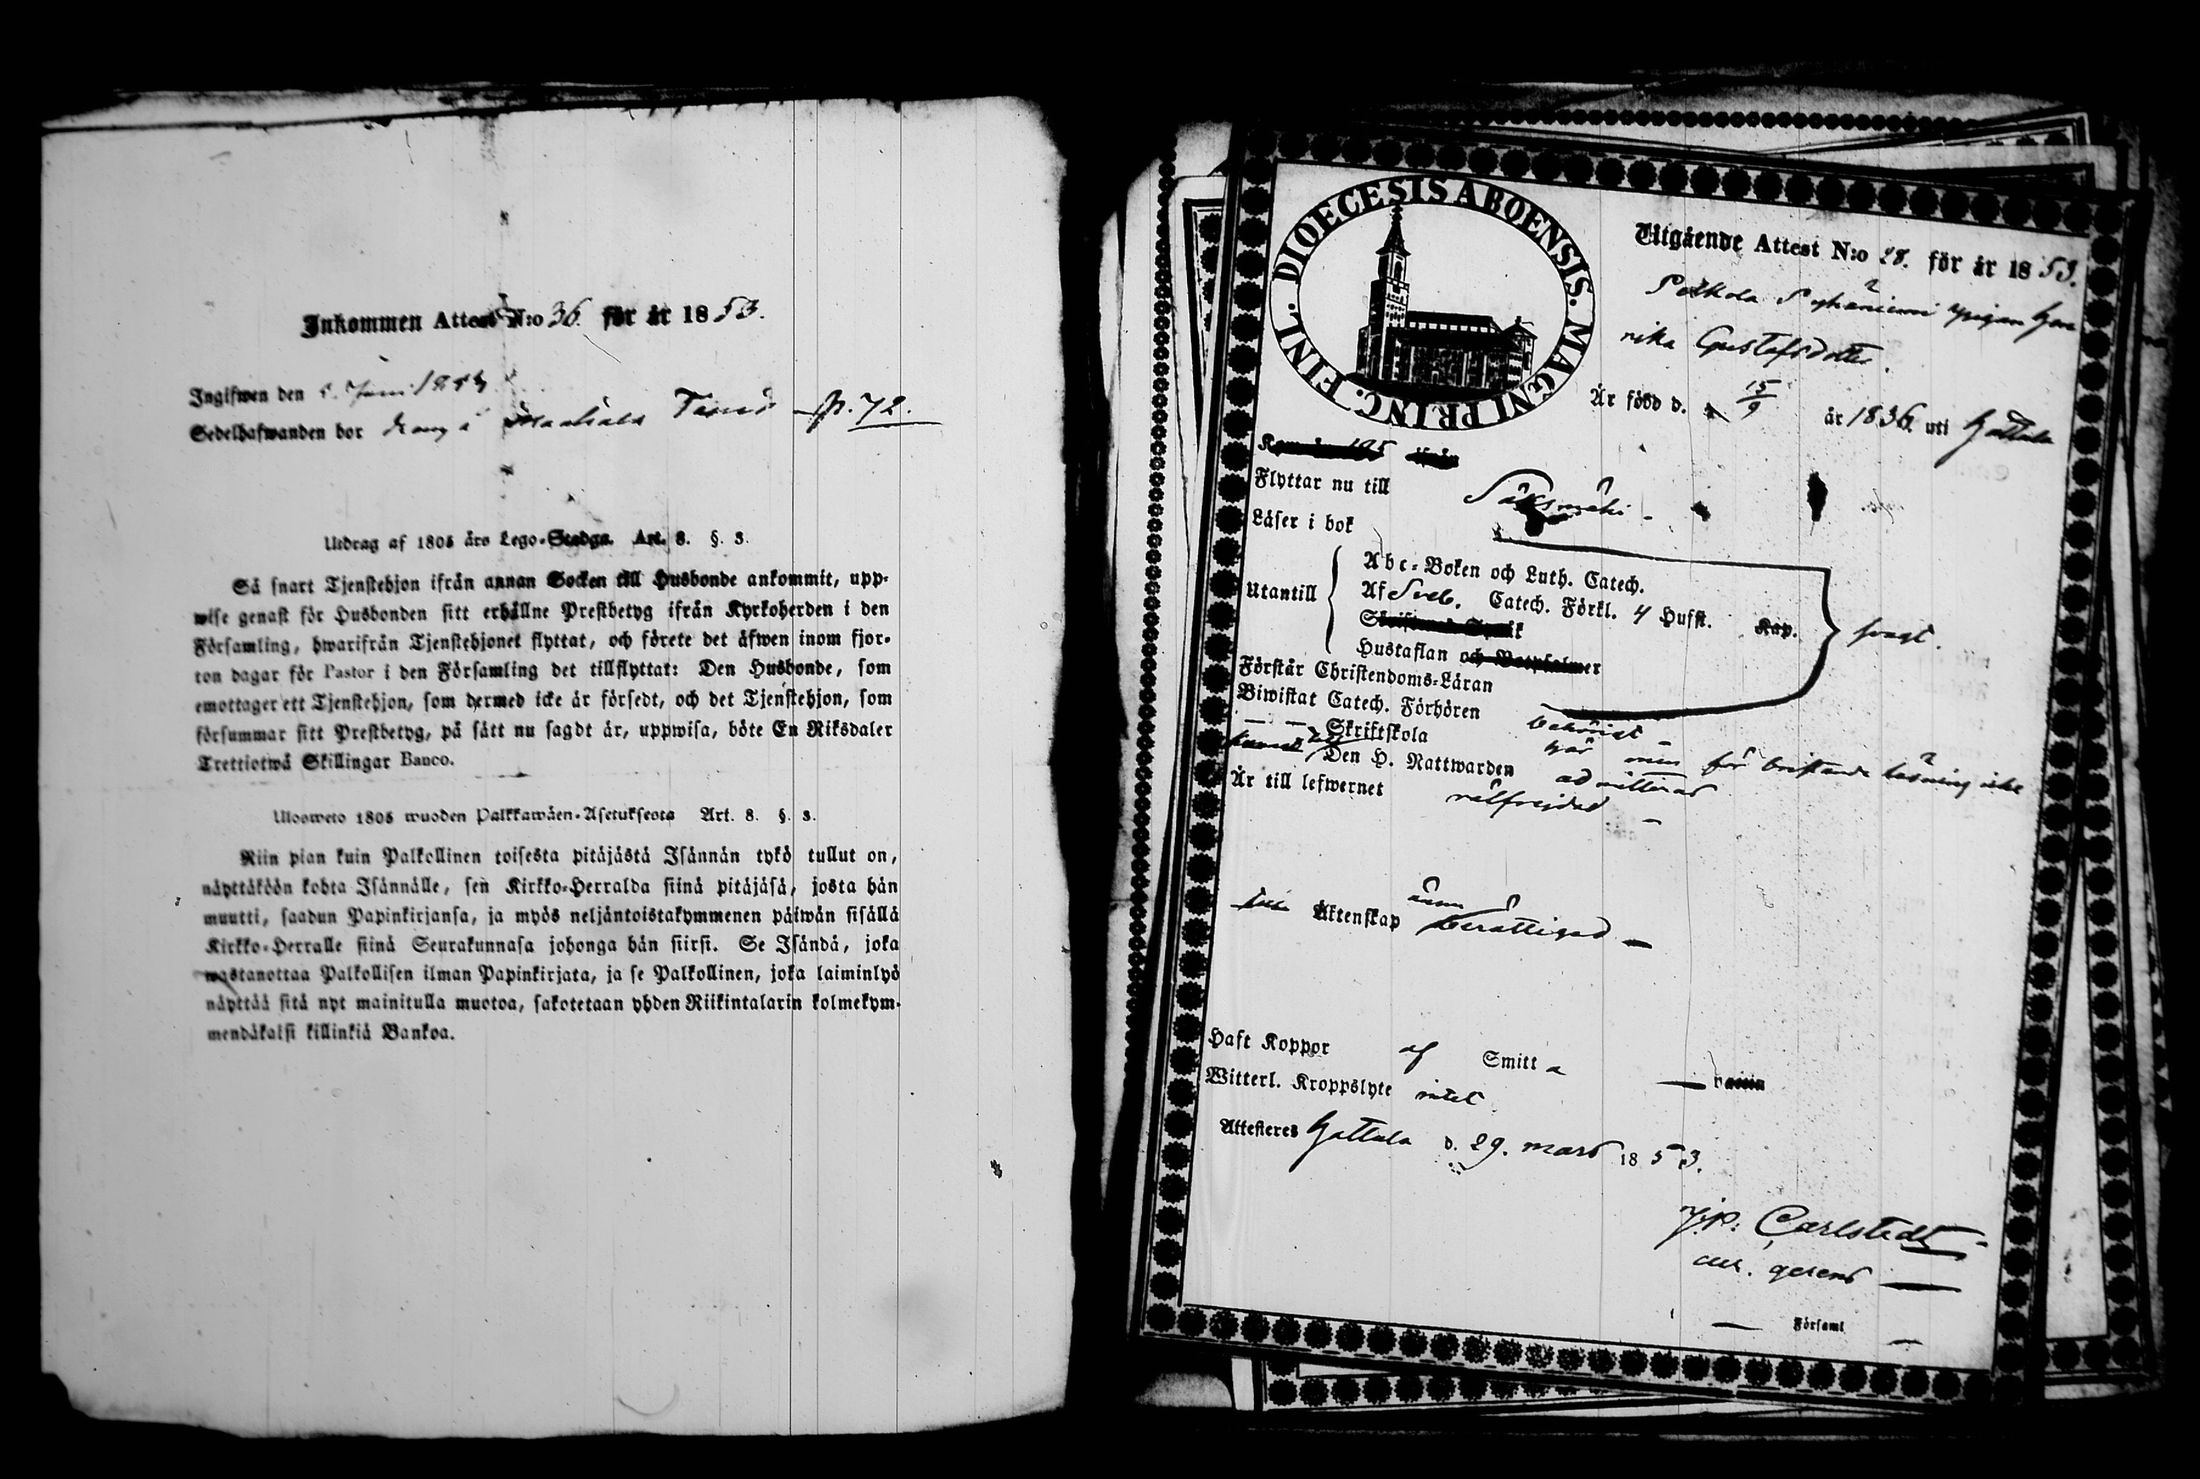 Inkommen Attest N:o 36. för år 1853.
Ingifwen den 5. Juni 1853
Sedelhafwanden bor p. 72.
Utdrag af 1805 års Lego-Stadga. Art. 8. §. 3.
Så snart Tjenstehjon ifrån annan Socken till Husbonde ankommit, upp-
wise genast för Husbonden sitt erhållne Prestbetyg ifrån Kyrkoherden i den
Församling, hwarifrån Tjenstehjonet flyttat, och förete det äfwen inom fjor-
ton dagar för Pastor i den Församling det tillflyttat: Den Husbonde, som
emottager ett Tjenstehjon, som dermed icke är försedt, och det Tjenstehjon, som
försummar sitt Prestbetyg, på sätt nu sagdt är, uppwisa, böte En Riksdaler
Trettiotwå Skillingar Banco.
Ulosweto 1805 wuoden Palkkawäen-Asetuksesta Art. 8. §. 3.
Niin pian kuin Palkollinen toisesta pitäjästä Isännän tykö tullut on,
näyttäköön kohta Isännälle, sen Kirkko-Herralda siinä pitäjäsä, josta hän
muutti, saadun Papinkirjansa, ja myös neljäntoistakymmenen päiwän sisällä
Kirkko-Herralle siinä Seurakunnasa johonga hän siirsi. Se Isändä, joka
wastanottaa Palkollisen ilman Papinkirjata, ja se Palkollinen, joka laiminlyö
näyttää sitä nyt mainitulla muotoa, sakotetaan yhden Riikintalarin kolmekym-
mendäkaksi killinkiä Bankoa.
DIOECESIS ABOENSIS. MAGNI PRINC. FINL.
Utgående Attest N:o 28. för år 1853.
pigan Hen
rika Gustafsdotter.
Är född d. 15/9 år 1836. uti Hattula
Flyttar nu till Sääksmäki -
Läser i bok
Utantill
Abc-Boken och Luth. Catech.
Af Sveb. Catech. Förkl. 4 Hufst. Kap.
svagt.
Hustaflan och Botpsalmer
Förstår Christendoms-Läran
Biwistat Catech. Förhören behörigt -
— — Skriftskola
Den H. Nattwarden för bristande läsning icke
admitterad
Är till lefwernet välfrejdad -
till Äktenskap ännu oberättigad -
Haft Koppor af Smitta
Witterl. Kroppslyte intet
Attesteras Hattula d. 29. mars 1853.
Carlstedt
cur. gerens
Församl